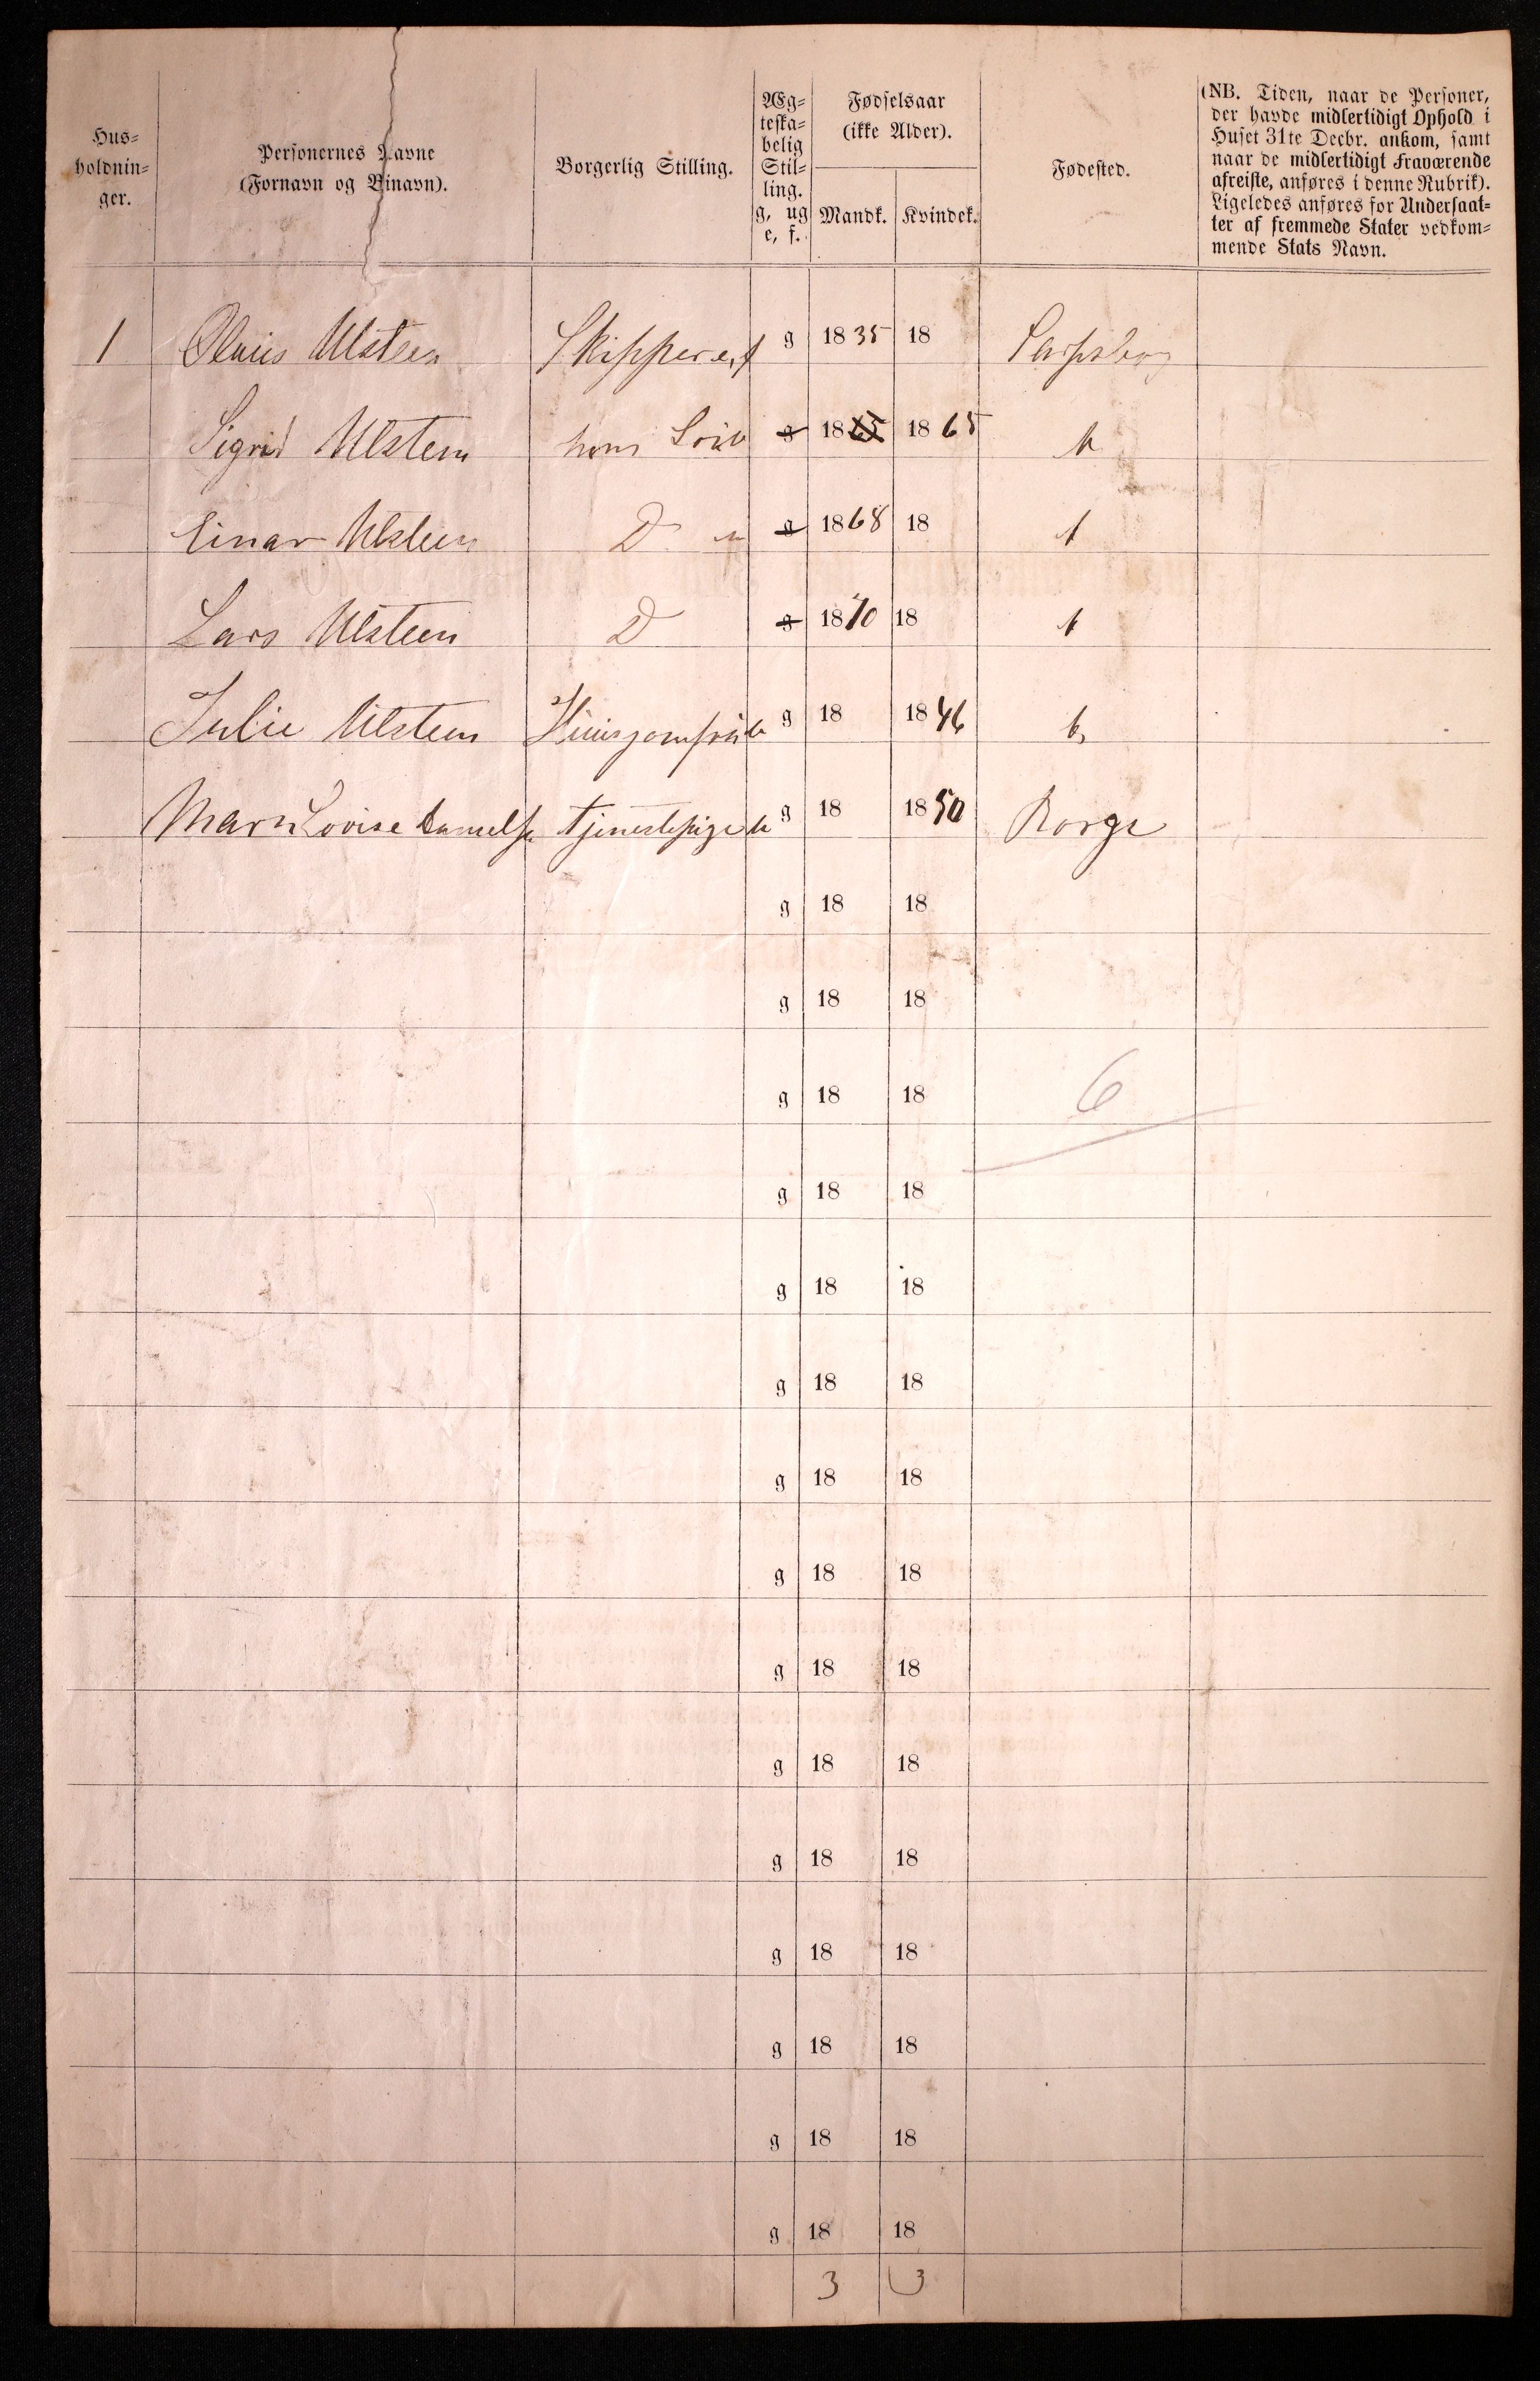 Hus=
holdnin=
ger.
Personernes Navne
(Fornavn og Binavn).
Borgerlig Stilling.
Æg=
teska=
belig
Stil=
ling.
g, ug
e, f.
Fødselsaar
(ikke Alder).
Mandk. Kvindek.
Fødested.
(NB. Tiden, naar de Personer,
der havde midlertidigt Ophold i
Huset 31te Decbr. ankom, samt
naar de midlertidigt Fraværende
afreiste, anføres i denne Rubrik).
Ligeledes anføres for Undersaat=
ter af fremmede Stater vedkom=
mende Stats Navn.
1 Oluis Ulsteen Skipper e, f g 1835 18 Sarpsborg
Sigrid Ulsteen hans g 18 1865
Einar Ulsteen D g 1868 18
Lars Ulsteen D g 1870 18
Julie Ulsteen Huusjomfru g 18 1846
Maren Lovise tjenestepige g 18 1850 Borge
g 18 18
g 18 18
g 18 18 6
g 18 18
g 18 18
g 18 18
g 18 18
g 18 18
g 18 18
g 18 18
g 18 18
g 18 18
g 18 18
g 18 18
g 18 18
3 3